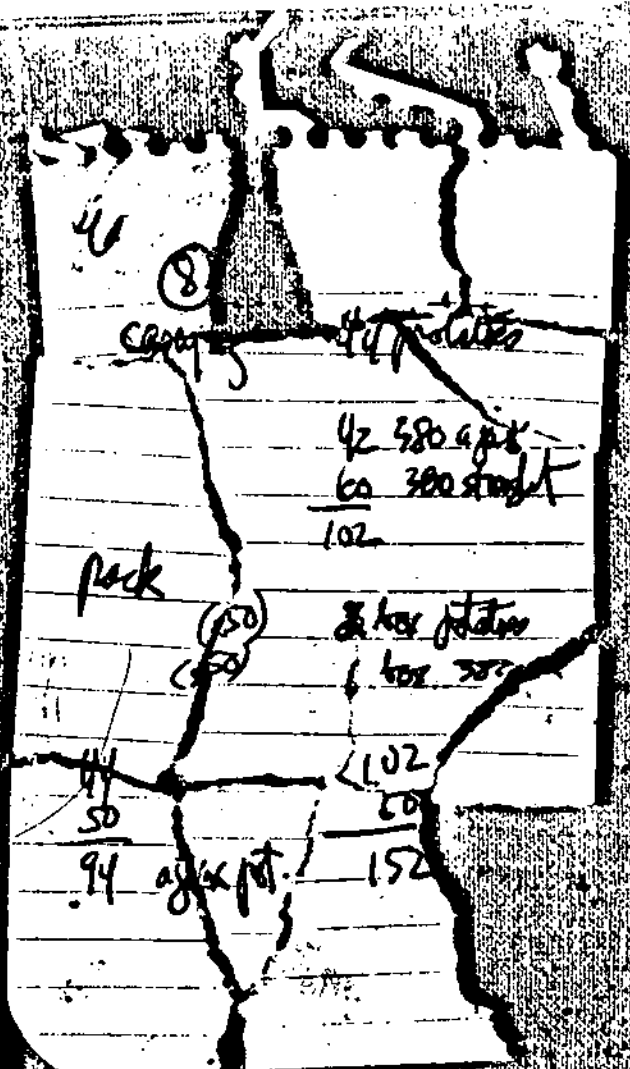 8
44 potatoes
42 380 ajax
60 380 straight
102
pack
(50)
(50)
box potatoes
1 box 380
44
50
94 ajax pot.
102
50
152